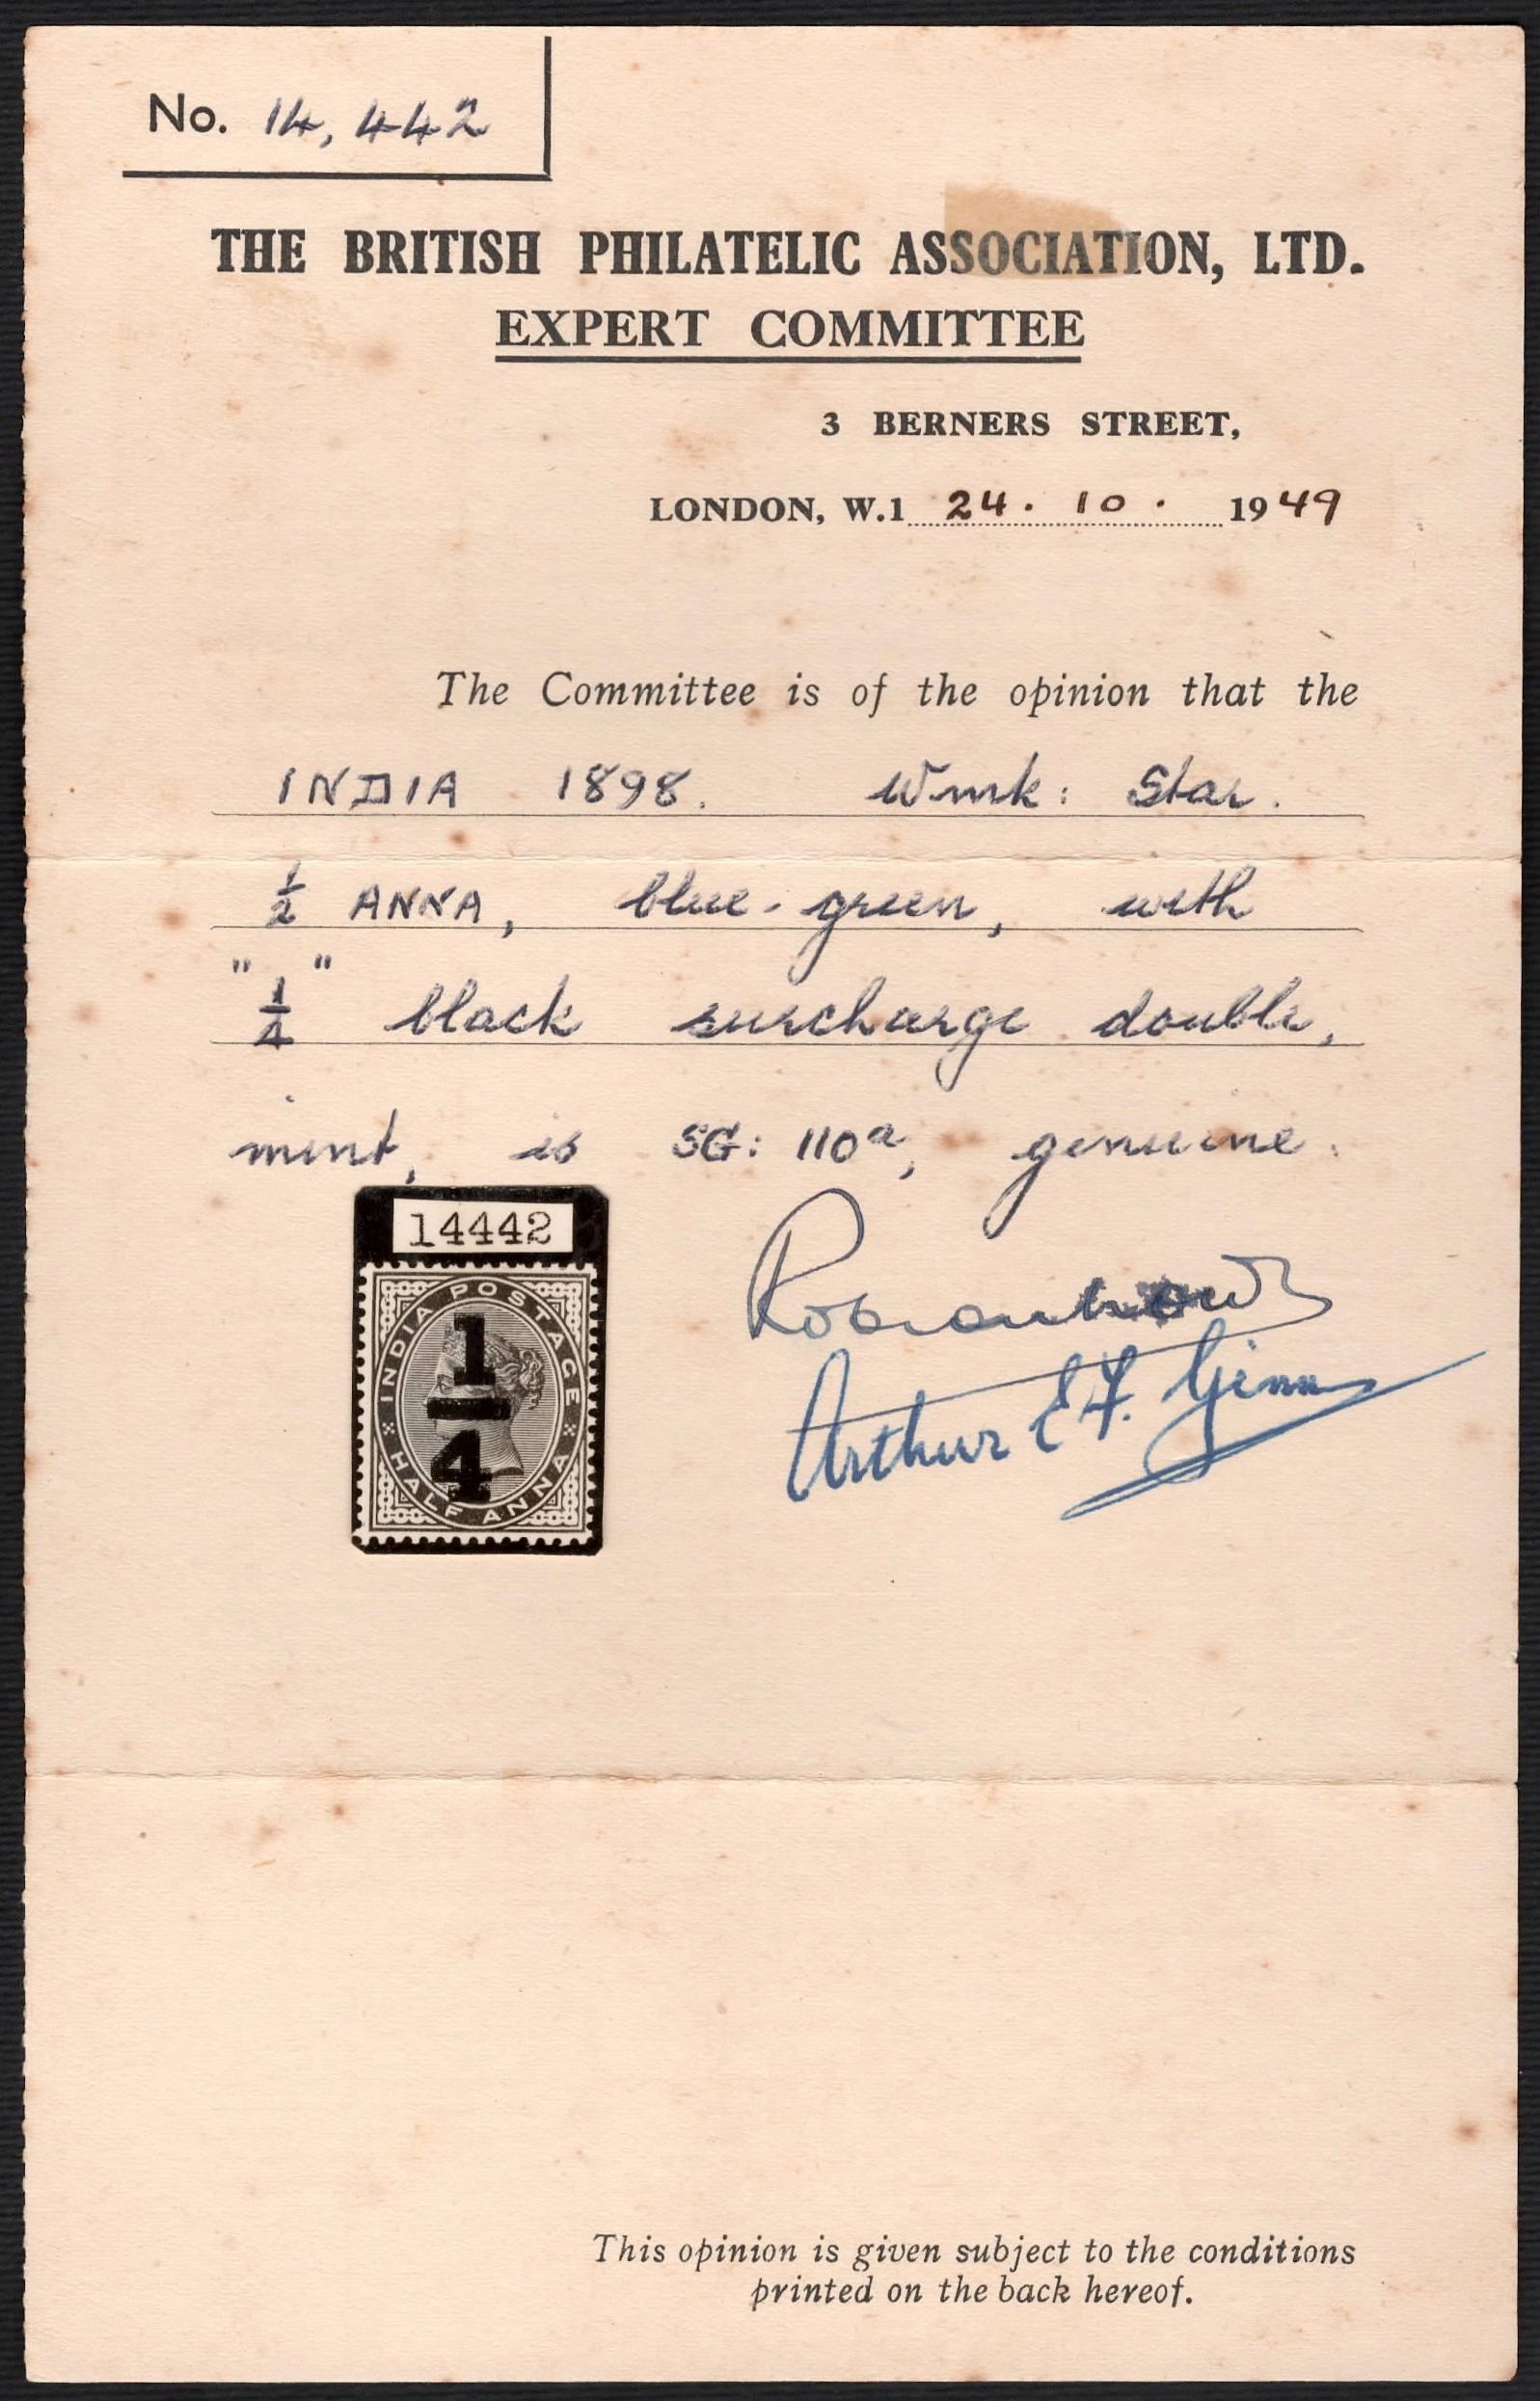 No. 14,442
THE BRITISH PHILATELIC ASSOCIATION, LTD.
EXPERT COMMITTEE
3 BERNERS STREET,
LONDON, W.1 24. 10. 1949
The Committee is of the opinion that the
INDIA 1898. Wmk: Star.
½ ANNA, blue-green, with
"¼" black surcharge double,
mint, is SG: 110a, genuine.
14442
INDIA POSTAGE
1/4
HALF ANNA
Arthur E F. Ginn
This opinion is given subject to the conditions
printed on the back hereof.